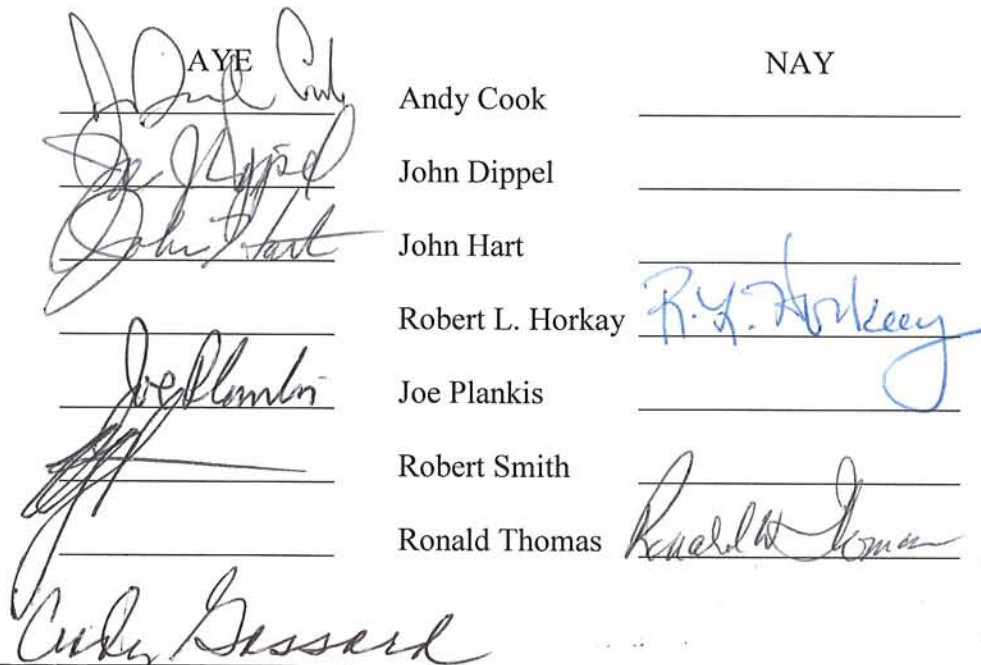 AYE NAY
Andy Cook
John Dippel
John Hart John Hart
Robert L. Horkay R. L. Horkay
Joe Plankis Joe Plankis
Robert Smith
Ronald Thomas Ronald Thomas
Cindy Gossard